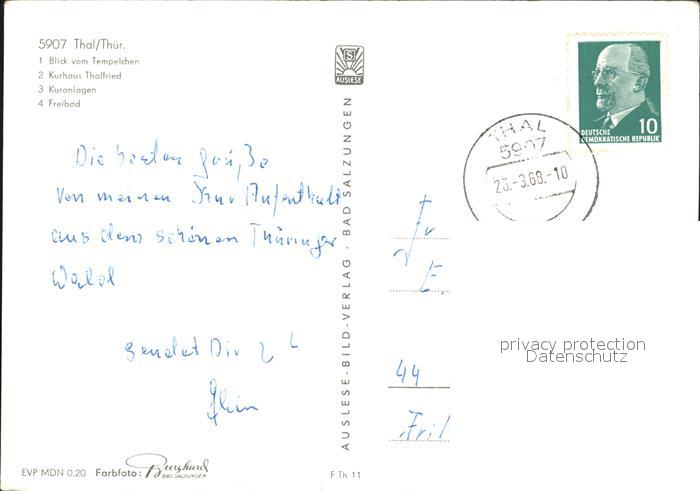 5907 Thal/Thür.
1 Blick vom Tempelchen
2 Kurhaus Thalfried
3 Kuranlagen
4 Freibad
S
AUSLESE
DEUTSCHE
DEMOKRATISCHE REPUBLIK
10
THAL
5907
23.-3.68.-10
Die besten Grüße
von meinen Kur Aufenthalt
aus dem schönen Thüringer
Wald
sendet Dir
AUSLESE-BILD-VERLAG · BAD SALZUNGEN
44
privacy protection
Datenschutz
EVP MDN 0,20 Farbfoto: Burghard
BAD SALZUNGEN
F Th 11